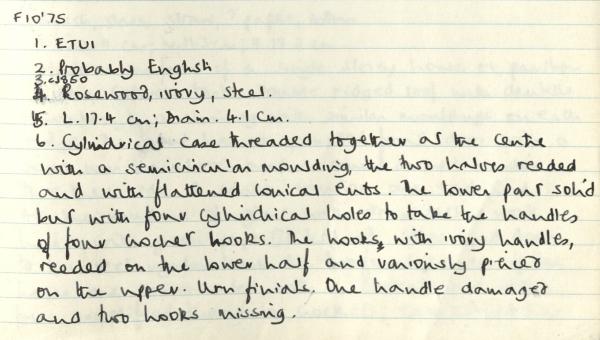 F10'75
1. ETUI
2. Probably English
3. c1850
4. Rosewood, ivory, steel.
5. L. 17.4 cm; Diam. 4.1 cm.
6. Cylindrical case threaded together at the centre
with a semicircular moulding, the two halves reeded
and with flattened conical ends. The lower part solid
but with four cylindrical holes to take the handles
of four crochet hooks. The hooks, with ivory handles,
reeded on the lower half and variously pierced
on the upper. Urn finials. One handle damaged
and two hooks missing.